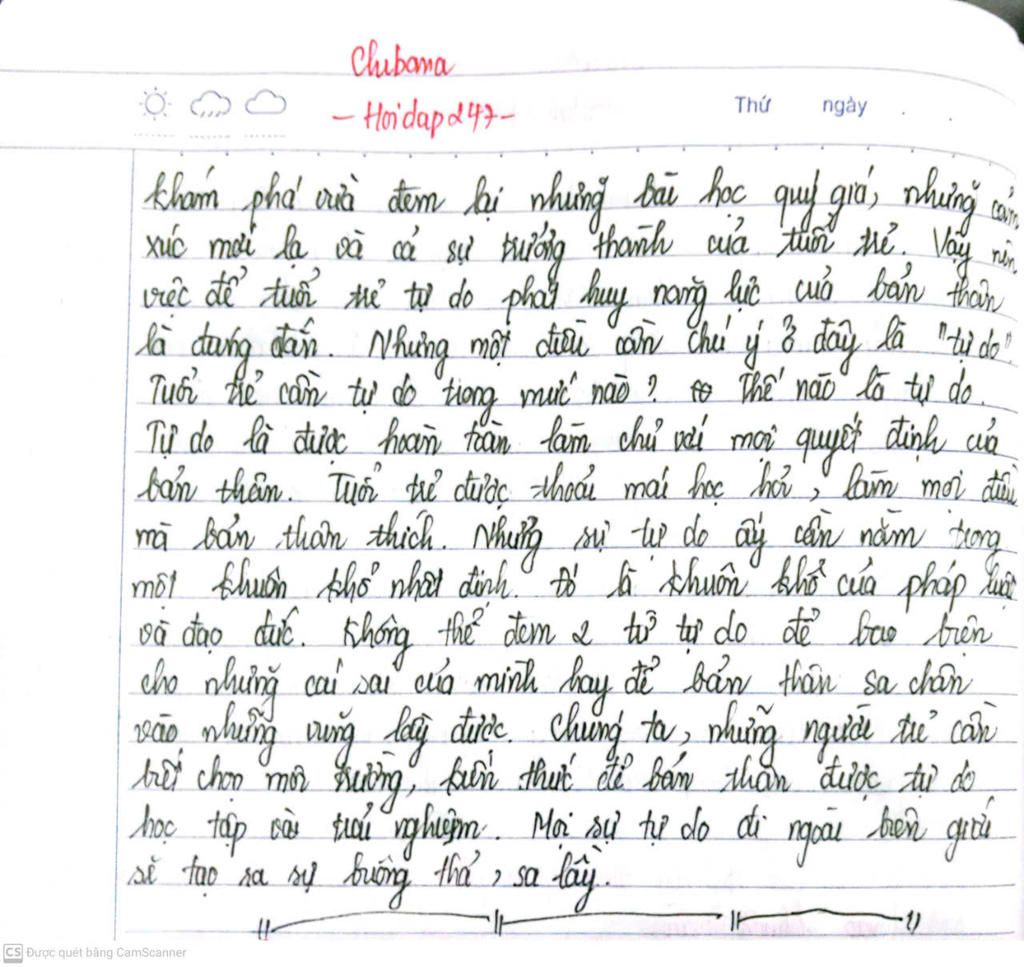 Chubana
- Hoidap247 -
Thứ ngày
khám phá vừa đem lại những bài học quý giá, những cảm
xúc mới lạ và cả sự trưởng thành của tuổi trẻ. Vậy nên
việc để tuổi trẻ tự do phát huy năng lực của bản thân
là đúng đắn. Nhưng một điều cần chú ý ở đây là "tự do".
Tuổi trẻ cần tự do trong mức nào? Thế nào là tự do.
Tự do là được hoàn toàn làm chủ với mọi quyết định của
bản thân. Tuổi trẻ được thoải mái học hỏi, làm mọi điều
mà bản thân thích. Nhưng sự tự do ấy cần nằm trong
một khuôn khổ nhất định. Đó là khuôn khổ của pháp luật
và đạo đức. Không thể đem 2 từ tự do để bao biện
cho những cái sai của mình hay để bản thân sa chân
vào những vũng lầy được. Chúng ta, những người trẻ cần
biết chọn môi trường, kiến thức để bản thân được tự do
học tập và trải nghiệm. Mọi sự tự do đi ngoài biên giới
sẽ tạo ra sự buông thả, sa lầy.
CS Được quét bằng CamScanner